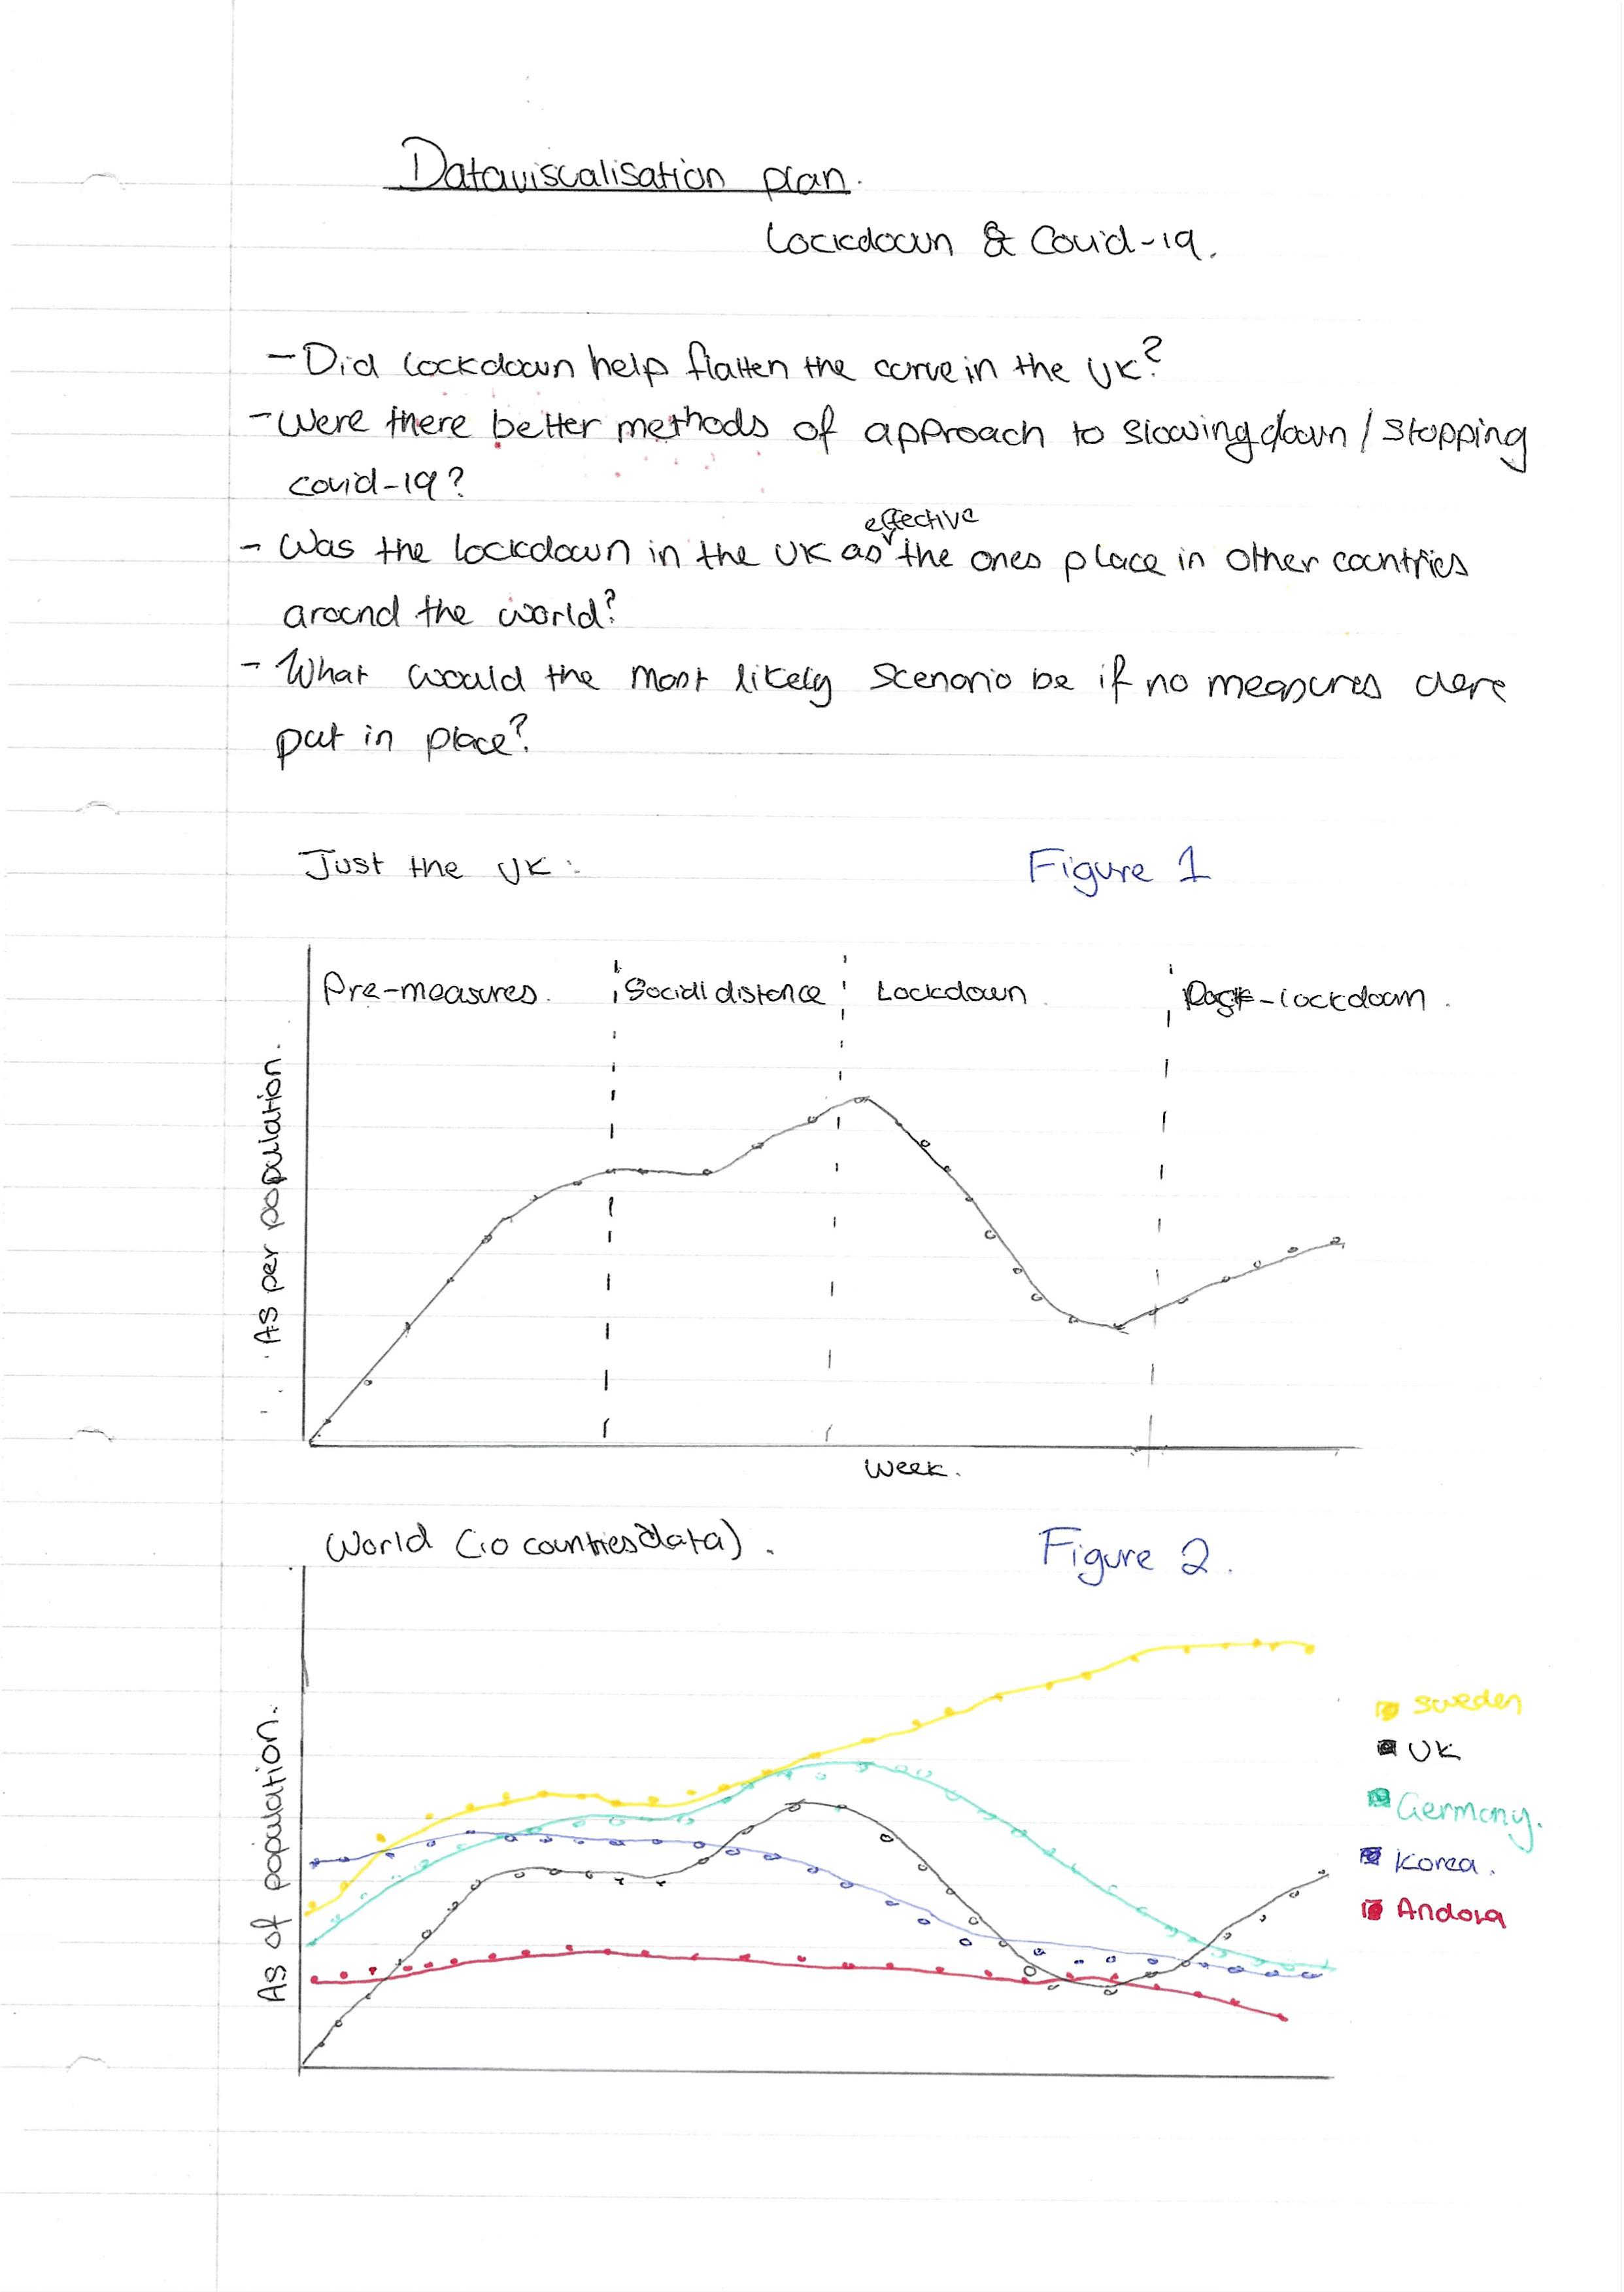 Dataviscalisation plan.
Lockdown & Covid-19.
- Did lockdown help flatten the curve in the UK?
- Were there better methods of approach to slowing down / stopping
covid-19?
- Was the lockdown in the UK as effective the ones place in other countries
around the world?
- What would the most likely scenario be if no measures were
put in place?
Just the UK:
Figure 1
Pre-measures.
Social distance
Lockdown
Post-lockdown.
As per population.
Week.
World (10 countries data).
Figure 2.
As of population.
Sweden
UK
Germany.
Korea.
Andora